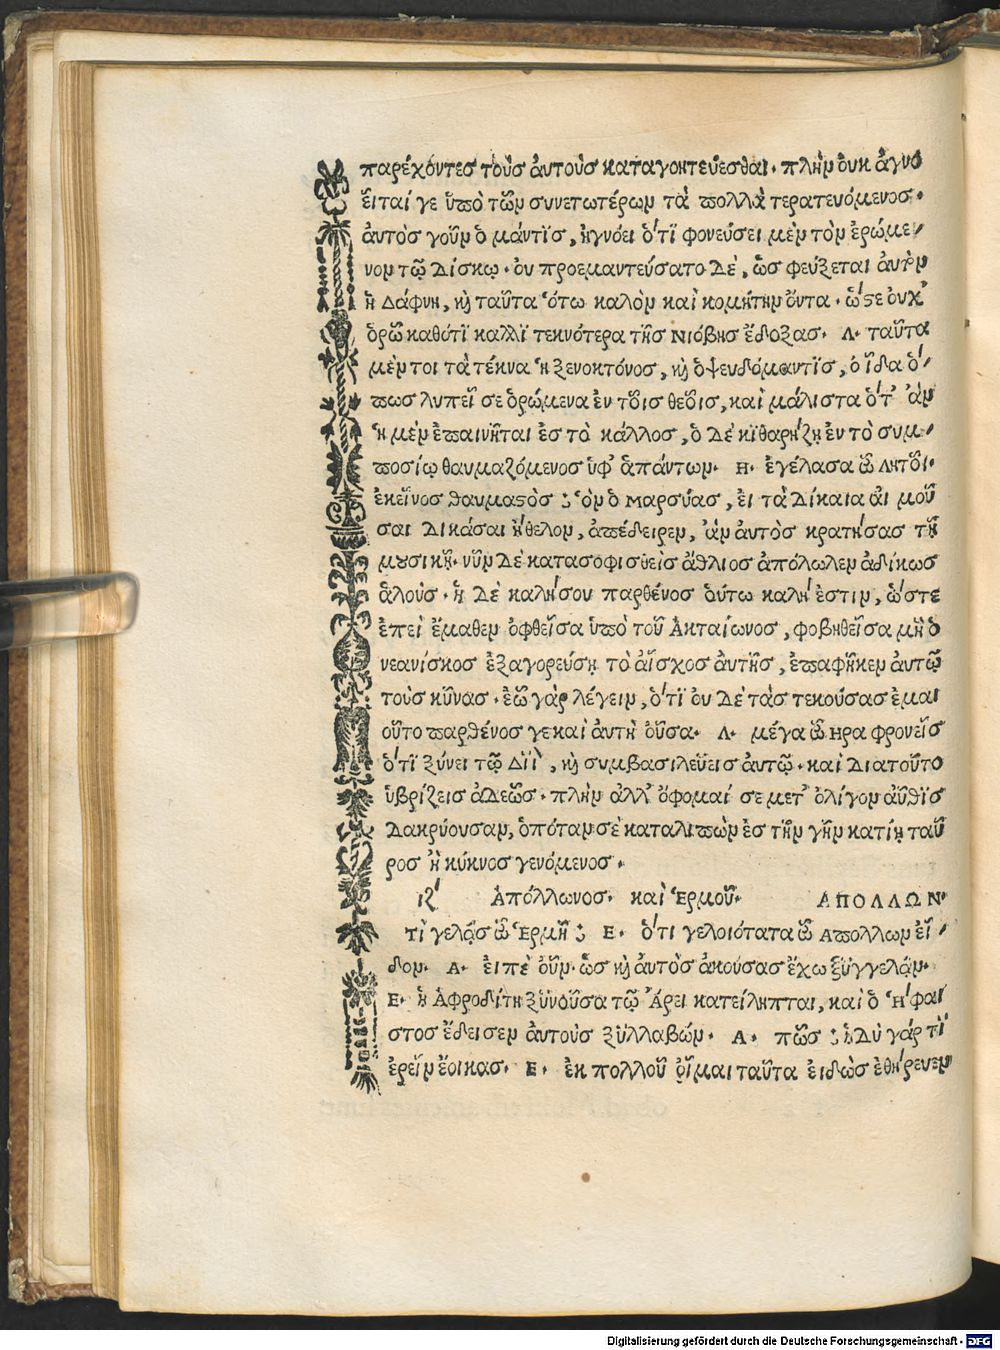 παρέχόντες τοὺς ἀυτοὺς καταγοητεύεσθαι. πλὴν ὀυκ ἀγνο
εῖταί γε ὑπὸ τῶν συνετωτέρων τὰ πολλὰ τερατευόμενος.
ἀυτὸς γοῦν ὁ μάντϊς, ἠγνόει ὅτϊ φονεύσει μὲν τὸν ἐρώμε/
νον τῷ Δίσκῳ. ὀυ προεμαντεύσατο Δὲ, ὡς φεύξεται ἀυτὸν
ἡ Δάφνη, ϗ ταῦτα ὅυτω καλὸν καὶ κομήτην ὄντα. ὥϛε ὀυχ᾽
ὁρῶ καθότϊ καλλϊτεκνότερα τῆς Νιόβης ἔδοξας. Λ. ταῦτα
μέν τοι τὰ τέκνα ἡ ξενοκτόνος, ϗ ὁ ψευδόμαντϊς, ὁῖδα ὅ/
πως λυπεῖ σε ὁρώμενα ἐν τοῖς θεοῖς, καὶ μάλιστα ὅτ᾽ ἀν
ἡ μὲν ἐπαινῆται ἐς τὸ κάλλος, ὁ Δὲ κϊθαρήζῃ ἐν τὸ συμ/
ποσίῳ θαυμαζόμενος ὑφ᾽ ἁπάντων. Η. ἐγέλασα ὦ Λητοῖ.
ἐκεῖνος θαυμαϛὸς ; ὅν ὁ Μαρσύας, ἐι τὰ Δίκαια ἁι μοῦ
σαι Δικάσαι ἤθελον, ἀπέδειρεν, ἂν ἀυτὸς κρατήσας τῇ
μȣσικῇ. νῦν Δὲ κατασοφισθεὶς ἄθλιος ἀπόλωλεν ἀδίκως
ἁλοὺς. ἡ Δὲ καλή σου παρθένος ὁύτω καλή ἐστιν, ὥστε
ἐπεὶ ἔμαθεν ὀφθεῖσα ὑπὸ τοῦ Ἀκταίωνος, φοβηθεῖσα μὴ ὁ
νεανίσκος ἐξαγορεύσῃ τὸ ἀῖσχος ἀυτῆς, ἐπαφῆκεν ἀυτῷ
τοὺς κῦνας. ἐῶ γὰρ λέγειν, ὅτϊ ὀυ Δὲ τὰς τεκούσας ἐμαι
οῦτο παρθένος γε καὶ ἀυτὴ ὀῦσα. Λ. μέγα ὦ Ηρα φρονεῖς
ὅτϊ ξύνει τῷ Δϊῒ, ϗ συμβασιλεύεις ἀυτῷ. καὶ Διατοῦτο
ὑβρίζεις ἀΔεῶς. πλὴν ἀλλ᾽ ὄψομαί σε μετ᾽ ὀλίγον ἀῦθϊς
Δακρύουσαν, ὁπόταν σὲ καταλιπὼν ἐς τὴν γῆν κατίῃ ταῦ
ρος ἢ κύκνος γενόμενος.
ιζʹ Ἀπόλλωνος. καὶ Ἑρμοῦ. ΑΠΟΛΛΩΝ.
τὶ γελᾷς ὦ Ἑρμῆ ; Ε. ὅτι γελοιότατα ὦ Απολλων εἶ/
δον. Α. ἐιπὲ ὀῦν. ὡς ϗ ἀυτὸς ἀκούσας ἔχω ξϋγγελᾷν.
Ε. ἡ Ἀφροδίτη ξϋνοῦσα τῷ Ἄρει κατείληπται, καὶ ὁ Ἥφαι
στος ἔδεισεν ἀυτοὺς ξϋλλαβών. Α. πῶς ; ἡδὺ γάρ τὶ
ἐρεῖν ἔοικας. Ε. ἐκ πολλοῦ ὀῖμαι ταῦτα ἐιδὼς ἐθήρευεν
Digitalisierung gefördert durch die Deutsche Forschungsgemeinschaft - DFG